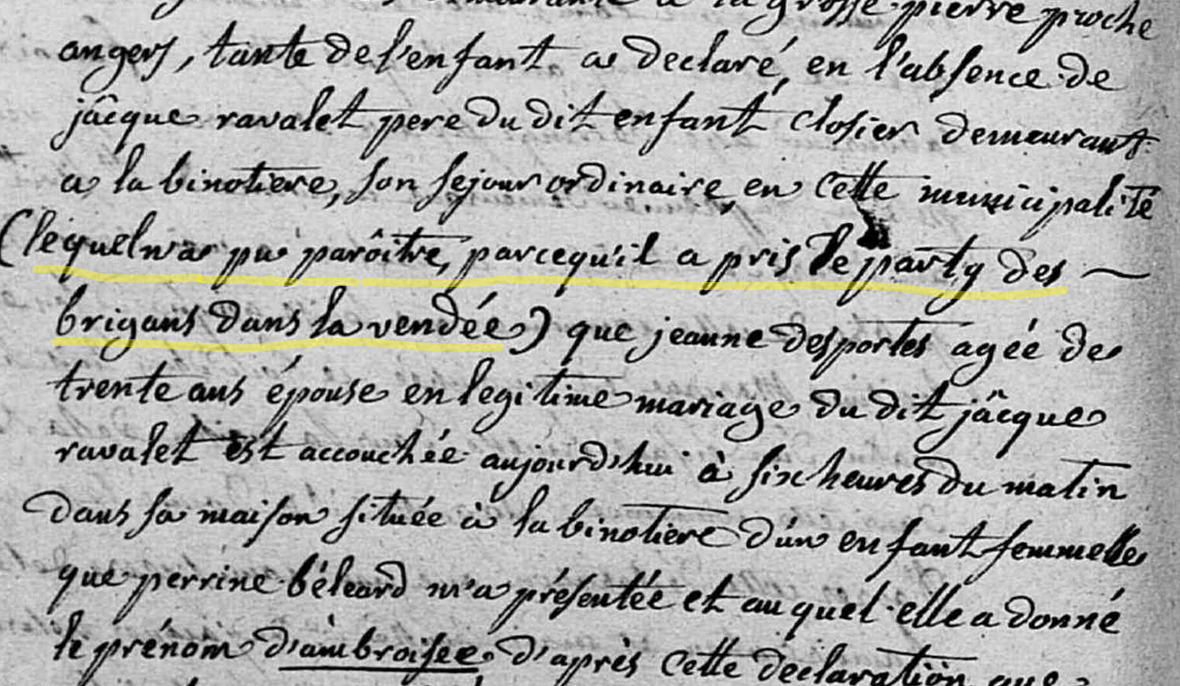 a la grosse pierre proche
angers, tante de l'enfant a declaré, en l'absence de
jâcque ravalet pere du dit enfant closier demeurant
a la binotiere, son sejour ordinaire, en cette municipalité
(lequel n'a pu parôitre, parcequ'il a pris le party des —
brigans dans la vendée) que jeanne desportes agée de
trente ans épouse en legitime mariage du dit jâcque
ravalet est accouchée aujourd'hui à six heures du matin
dans sa maison située à la binotiere d'un enfant femmelle
que perrine béleard m'a présentée et au quel elle a donné
le prénom d'ambroisee d'après cette declaration que